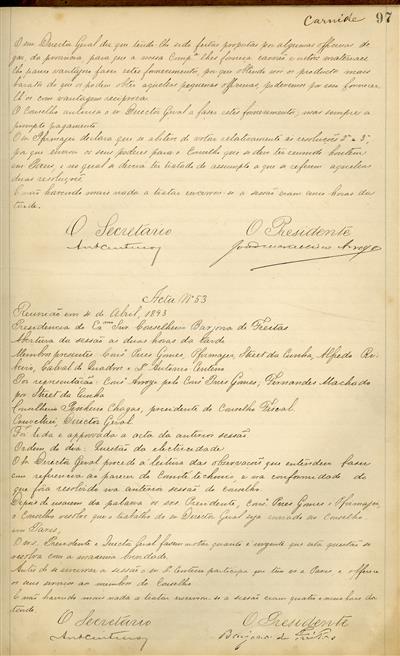 Carnide 97
O snr Director Geral diz que tendo lhe sido feitas propostas por algumas officinas de
gaz, da provincia para que a nossa Compª lhes forneça carvão e outros materiaes
lhe parece vantajoso fazer estes fornecimentos, por que obtendo nós os productos mais
barato do que os podem obter aquellas pequenas officinas, poderemos por isso fornecer
lh'os com vantagem reciproca.
O Conselho autorisa o sr Director Geral a fazer estes fornecimentos, mas sempre a
prompto pagamento.
O sr declara que se absteve de votar relativamente ás resoluções 2ª e 3ª,
já que enviou os seus poderes para o Conselho que se deve ter reunido hontem
em Paris, e no qual se deveria ter tratado do assumpto a que se referem aquellas
duas resoluções.
E não havendo mais nada a tratar encerrou-se a sessão eram cinco horas da
tarde.
O Secretario O Presidente
Acta Nº 53
Reunião em 4 de Abril, 1893
Presidencia do Exmo Snr Conselheiro Barjona de Freitas
Abertura da sessão ás duas horas da tarde
Membros presentes: Consº Pires Gomes, Street da Cunha, Alfredo Ribeiro, Cabral de Quadros e Antonio Centeno
Por representação: Consº Arroyo pelo Consº Pires Gomes; Fernandes Machado
por Street da Cunha
Conselheiro Pinheiro Chagas, presidente do Conselho Fiscal.
Director Geral
Foi lida e approvada a acta da anterior sessão
Ordem do dia: Questão da electricidade
O sr Director Geral procede á leitura das observações que entendeu fazer
com referencia ao parecer do Comité technico e na conformidade do
que fôra resolvido na anterior sessão do Conselho.
Depois de usarem da palavra os srs Presidente, Consº Pires Gomes e
o Conselho resolve que o trabalho do sr Director Geral seja enviado ao Conselho
em Paris.
Os srs Presidente e Director Geral fazem notar quanto é urgente que esta questão se
resolva com a maxima brevidade.
Antes de se encerrar a sessão o sr Centeno participa que vae a Paris e offerece
os seus serviços aos membros do Conselho
E não havendo mais nada a tratar encerrou-se a sessão eram quatro e meia horas da
tarde.
O Secretario O Presidente
Barjona de Freitas